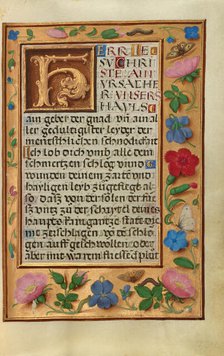 HERR IE
SV CHRI
STE AIN
VRSACHE
R VNSERS
HAYLS
ain geber der gnad vn̄ ain al
ler gedultigister leyder der
menschlichen schnödichait
Ich lob dich vmb alle dein
schmertzen schleg vnnd
wunden deinem zarte vnd
hayligen leyb zugefiegt al
so, das von der solen der füs
sz vntz zu der schaytel deines
haupts kain gantze stat die
nit zerschlagen, so der schle
gen auff geschwollen oder
aber mit warm fliessēd plut